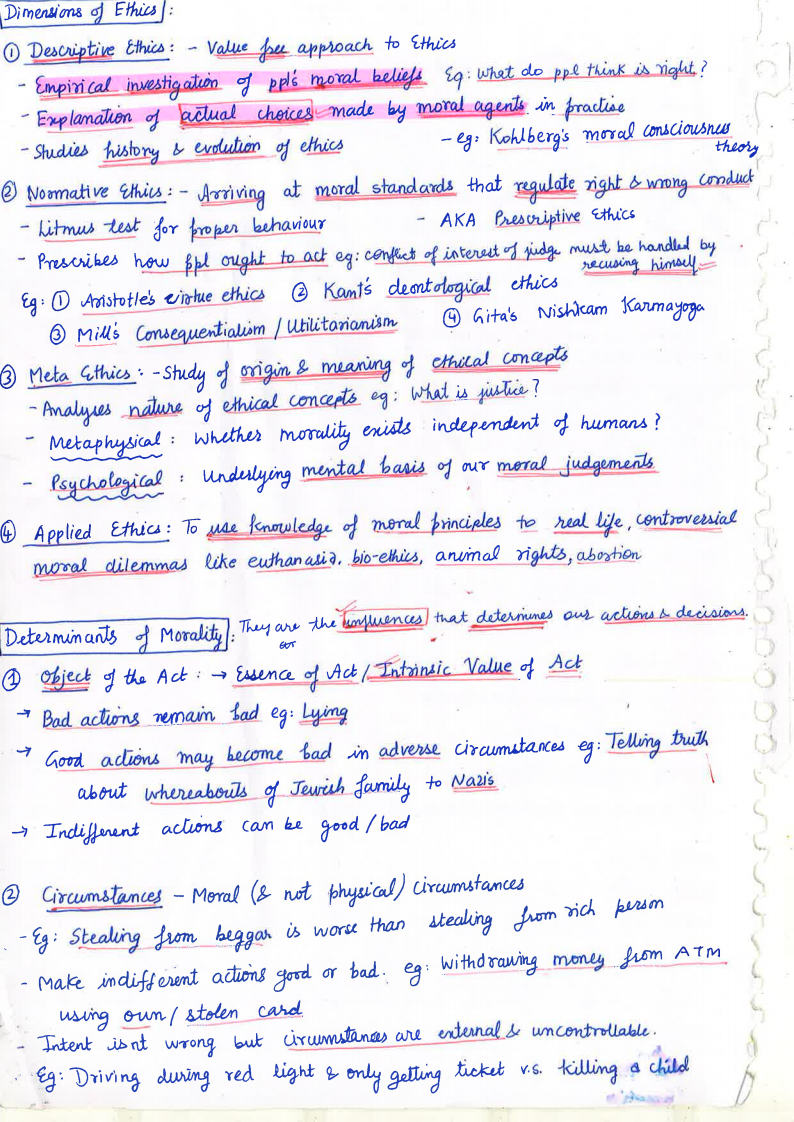 Dimensions of Ethics :
① Descriptive Ethics : - Value free approach to Ethics
- Empirical investigation of ppl's moral beliefs Eg: What do ppl think is right?
- Explanation of actual choices made by moral agents in practise
- Studies history & evolution of ethics - eg: Kohlberg's moral consciousness theory
② Normative Ethics : - Arriving at moral standards that regulate right & wrong conduct
- Litmus test for proper behaviour - AKA Prescriptive Ethics
- Prescribes how ppl ought to act eg: conflict of interest of judge must be handled by recusing himself
Eg: ① Aristotle's virtue ethics ② Kant's deontological ethics
③ Mill's Consequentialism / Utilitarianism ④ Gita's Nishkam Karmayoga
③ Meta Ethics : - Study of origin & meaning of ethical concepts
- Analyses nature of ethical concepts eg: What is justice?
- Metaphysical : Whether morality exists independent of humans?
- Psychological : Underlying mental basis of our moral judgements
④ Applied Ethics : To use knowledge of moral principles to real life, controversial
moral dilemmas like euthanasia, bio-ethics, animal rights, abortion
Determinants of Morality : They are the influences that determines our actions & decisions.
① Object of the Act : → Essence of Act / Intrinsic Value of Act
→ Bad actions remain bad eg: Lying
→ Good actions may become bad in adverse circumstances eg: Telling truth
about whereabouts of Jewish family to Nazis
→ Indifferent actions can be good / bad
② Circumstances - Moral (& not physical) Circumstances
- Eg: Stealing from beggar is worse than stealing from rich person
- Make indifferent actions good or bad. eg: Withdrawing money from ATM
using own / stolen card
- Intent isnt wrong but circumstances are external & uncontrollable.
Eg: Driving during red light & only getting ticket v.s. killing a child